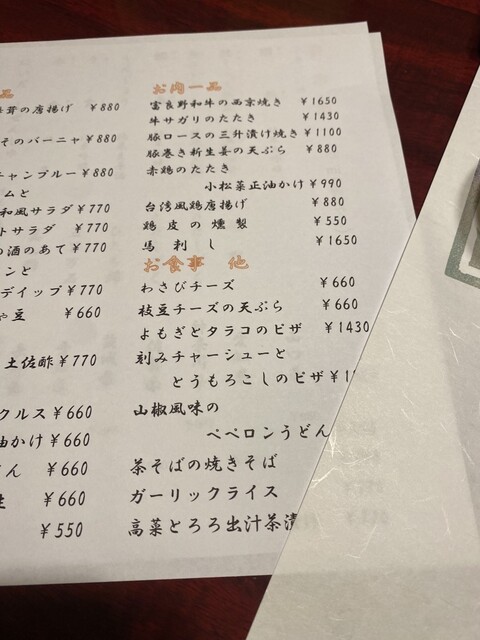 品
茸の唐揚げ ¥880
そのバーニャ ¥880
チャンプルー ¥880
ムと
和風サラダ ¥770
トサラダ ¥770
の酒のあて ¥770
ンと
デイップ ¥770
豆 ¥660
土佐酢 ¥770
クルス ¥660
油かけ ¥660
ん ¥660
¥660
¥550
お肉一品
富良野和牛の西京焼き ¥1650
牛サガリのたたき ¥1430
豚ロースの三升漬け焼き ¥1100
豚巻き新生姜の天ぷら ¥880
赤鶏のたたき
小松菜正油かけ ¥990
台湾風鶏唐揚げ ¥880
鶏皮の燻製 ¥550
馬刺し ¥1650
お食事 他
わさびチーズ ¥660
枝豆チーズの天ぷら ¥660
よもぎとタラコのピザ ¥1430
刻みチャーシューと
とうもろこしのピザ ¥1
山椒風味の
ペペロンうどん
茶そばの焼きそば
ガーリックライス
高菜とろろ出汁茶漬